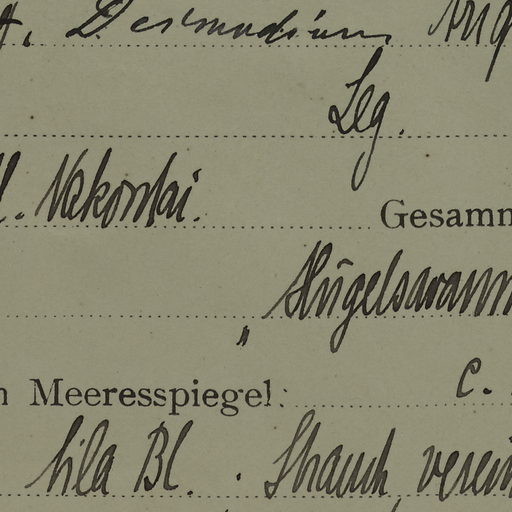 Desmodium
Leg.
Nakorstai. Gesamm
„ Hügelsavann
Meeresspiegel: c.
lila Bl. . Strauch, verein